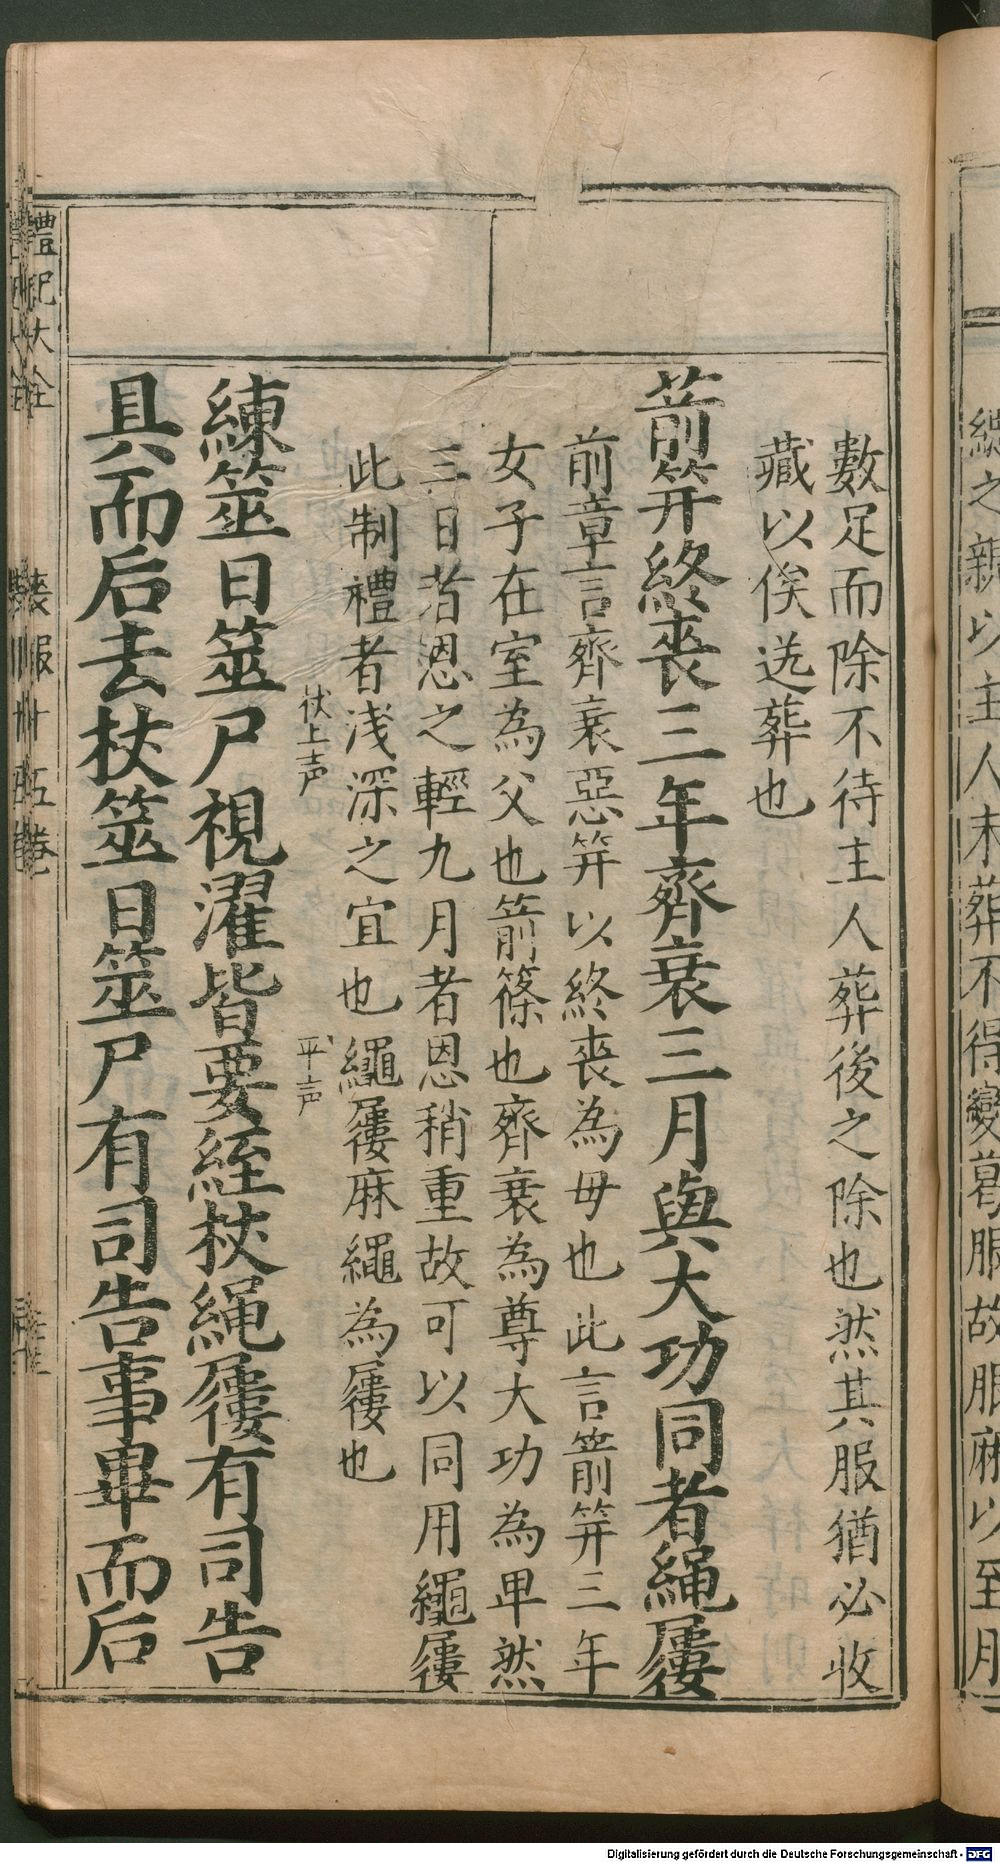 數足而除不待主人葬後之除也然其服猶必收
藏以俟送葬也
箭笄終喪三年齊衰三月與大功同者繩屨
前章言齊衰惡笄以終喪為母也此言箭笄三年
女子在室為父也箭篠也齊衰為尊大功為卑然
三月者恩之輕九月者恩稍重故可以同用繩屨
此制禮者浅深之宜也繩屨麻繩為屨也
杖上声
平声
練筮日筮尸視濯皆要絰杖繩屨有司告
具而后去杖筮日筮尸有司告事畢而后
禮記大全
喪服
十五巻
緦之親以主人未葬不得變葛服故服麻以至月
Digitalisierung gefördert durch die Deutsche Forschungsgemeinschaft - DFG